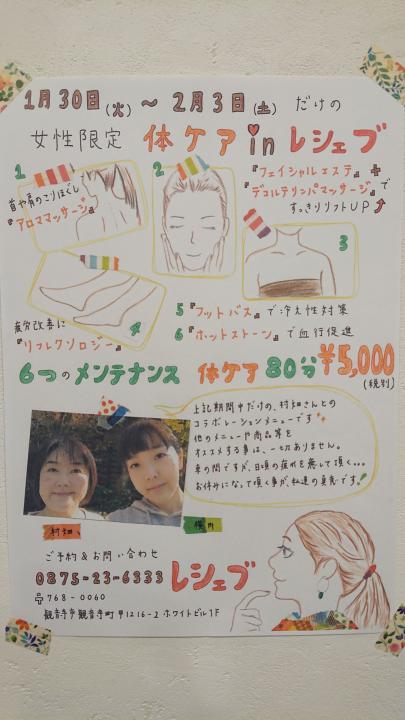 1月30日(火)～2月3日(土)だけの
女性限定 体ケア in レシェブ
1
首や肩のこりほぐし
『アロママッサージ』
2
『フェイシャルエステ』+
『デコルテリンパマッサージ』で
すっきりリフトUP
3
4
疲労改善に
『リフレクソロジー』
5『フットバス』で冷え性対策
6『ホットストーン』で血行促進
6つのメンテナンス 体ケア80分¥5,000
(税別)
上記期間中だけの、村畑さんとの
コラボレーションメニューです
他のメニューや商品等を
オススメする事は、一切ありません。
束の間ですが、日頃の疲れを癒して頂く…
お休みになって頂く事が、私達の真意です!
村畑
横内
ご予約&お問い合わせ
0875-23-6333 レシェブ
〒768-0060
観音寺市観音寺町甲1216-2 ホワイトビル1F